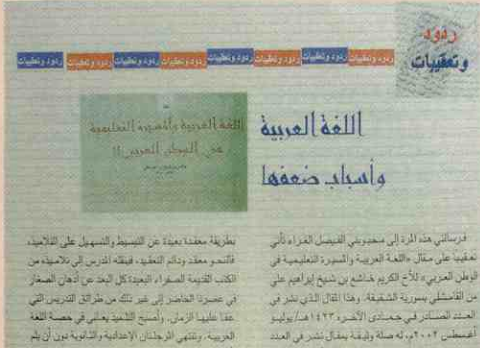 ردود
وتعقيبات
ردود وتعقيبات ردود وتعقيبات ردود وتعقيبات ردود وتعقيبات ردود وتعقيبات ردود وتعقيبات ردود وتعقيبات ردود وتعقيبات
اللغة العربية
وأسباب ضعفها
اللغة العربية والمسيرة التعليمية
في الوطن العربي!!
فرسالتي هذه المرة إلى محبوبتي الفيصل الغراء تأتي
تعقيباً على مقال «اللغة العربية والمسيرة التعليمية في
الوطن العربي» للأخ الكريم خاشع بن شيخ إبراهيم علي
من القامشلي بسورية الشقيقة. وهذا المقال الذي نشر في
العدد الصادر في جمادى الآخرة ١٤٢٣هـ/ يوليو
أغسطس ٢٠٠٢م، له صلة وثيقة بمقال نشر في العدد
بطريقة معقدة بعيدة عن التبسيط والتسهيل على التلاميذ،
فالنحو معقد ودائم التعقيد، فينقله المدرس إلى تلاميذه من
الكتب القديمة الصفراء البعيدة كل البعد عن أذهان الصغار
في عصرنا الحاضر إلى غير ذلك من طرائق التدريس التي
عفا عليها الزمان. وأصبح التلميذ يعاني في حصة اللغة
العربية. وتنتهي المرحلتان الإعدادية والثانوية دون أن يلم